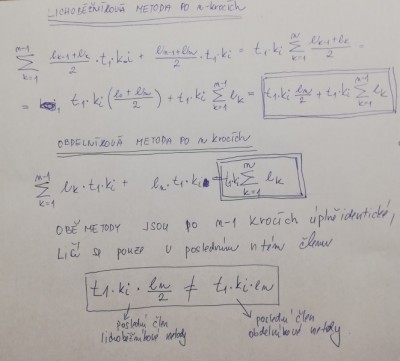 LICHOBĚŽNÍKOVÁ METODA PO n-krocích
∑_{k=1}^{n-1} (l_{k-1}+l_k)/2 · t₁·k_i + (l_{n-1}+l_n)/2 · t₁·k_i = t₁·k_i ∑_{k=1}^{n} (l_{k-1}+l_k)/2 =
= t₁·k_i ((l_0+l_n)/2) + t₁·k_i ∑_{k=1}^{n-1} l_k = t₁·k_i l_n/2 + t₁·k_i ∑_{k=1}^{n-1} l_k
OBDELNÍKOVÁ METODA PO n krocích
∑_{k=1}^{n-1} l_k · t₁·k_i + l_n · t₁·k_i = t₁·k_i ∑_{k=1}^{n} l_k
OBĚ METODY JSOU PO n-1 KROCÍCH úplně identické,
LIŠÍ se pouze v posledním n tém členu
t₁·k_i · l_n/2 ≠ t₁·k_i·l_n
poslední člen
lichoběžníkové metody
poslední člen
obdelníkové metody